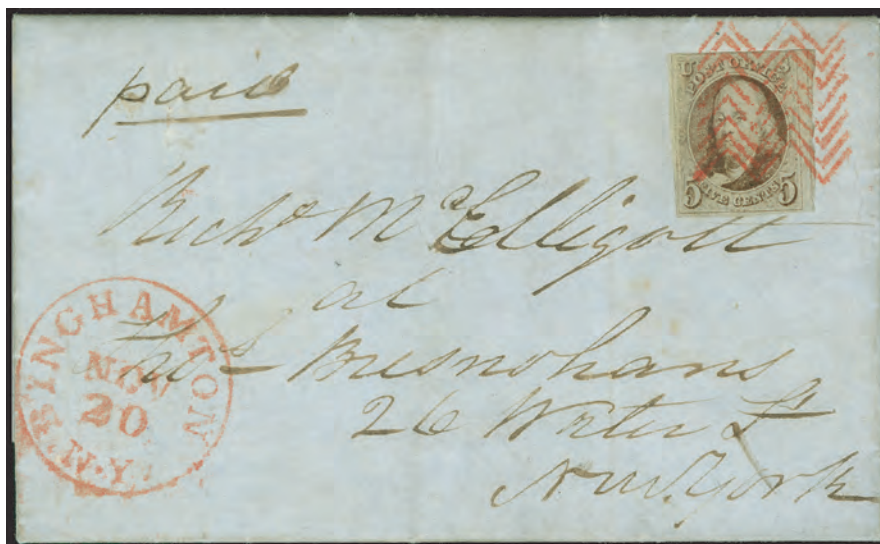 paid
U S
POST OFFICE
5 FIVE CENTS 5
Richd McElligott
at
Thos Busnohans
26 Water St
New York
BINGHAMTON
NOV
20
N.Y.